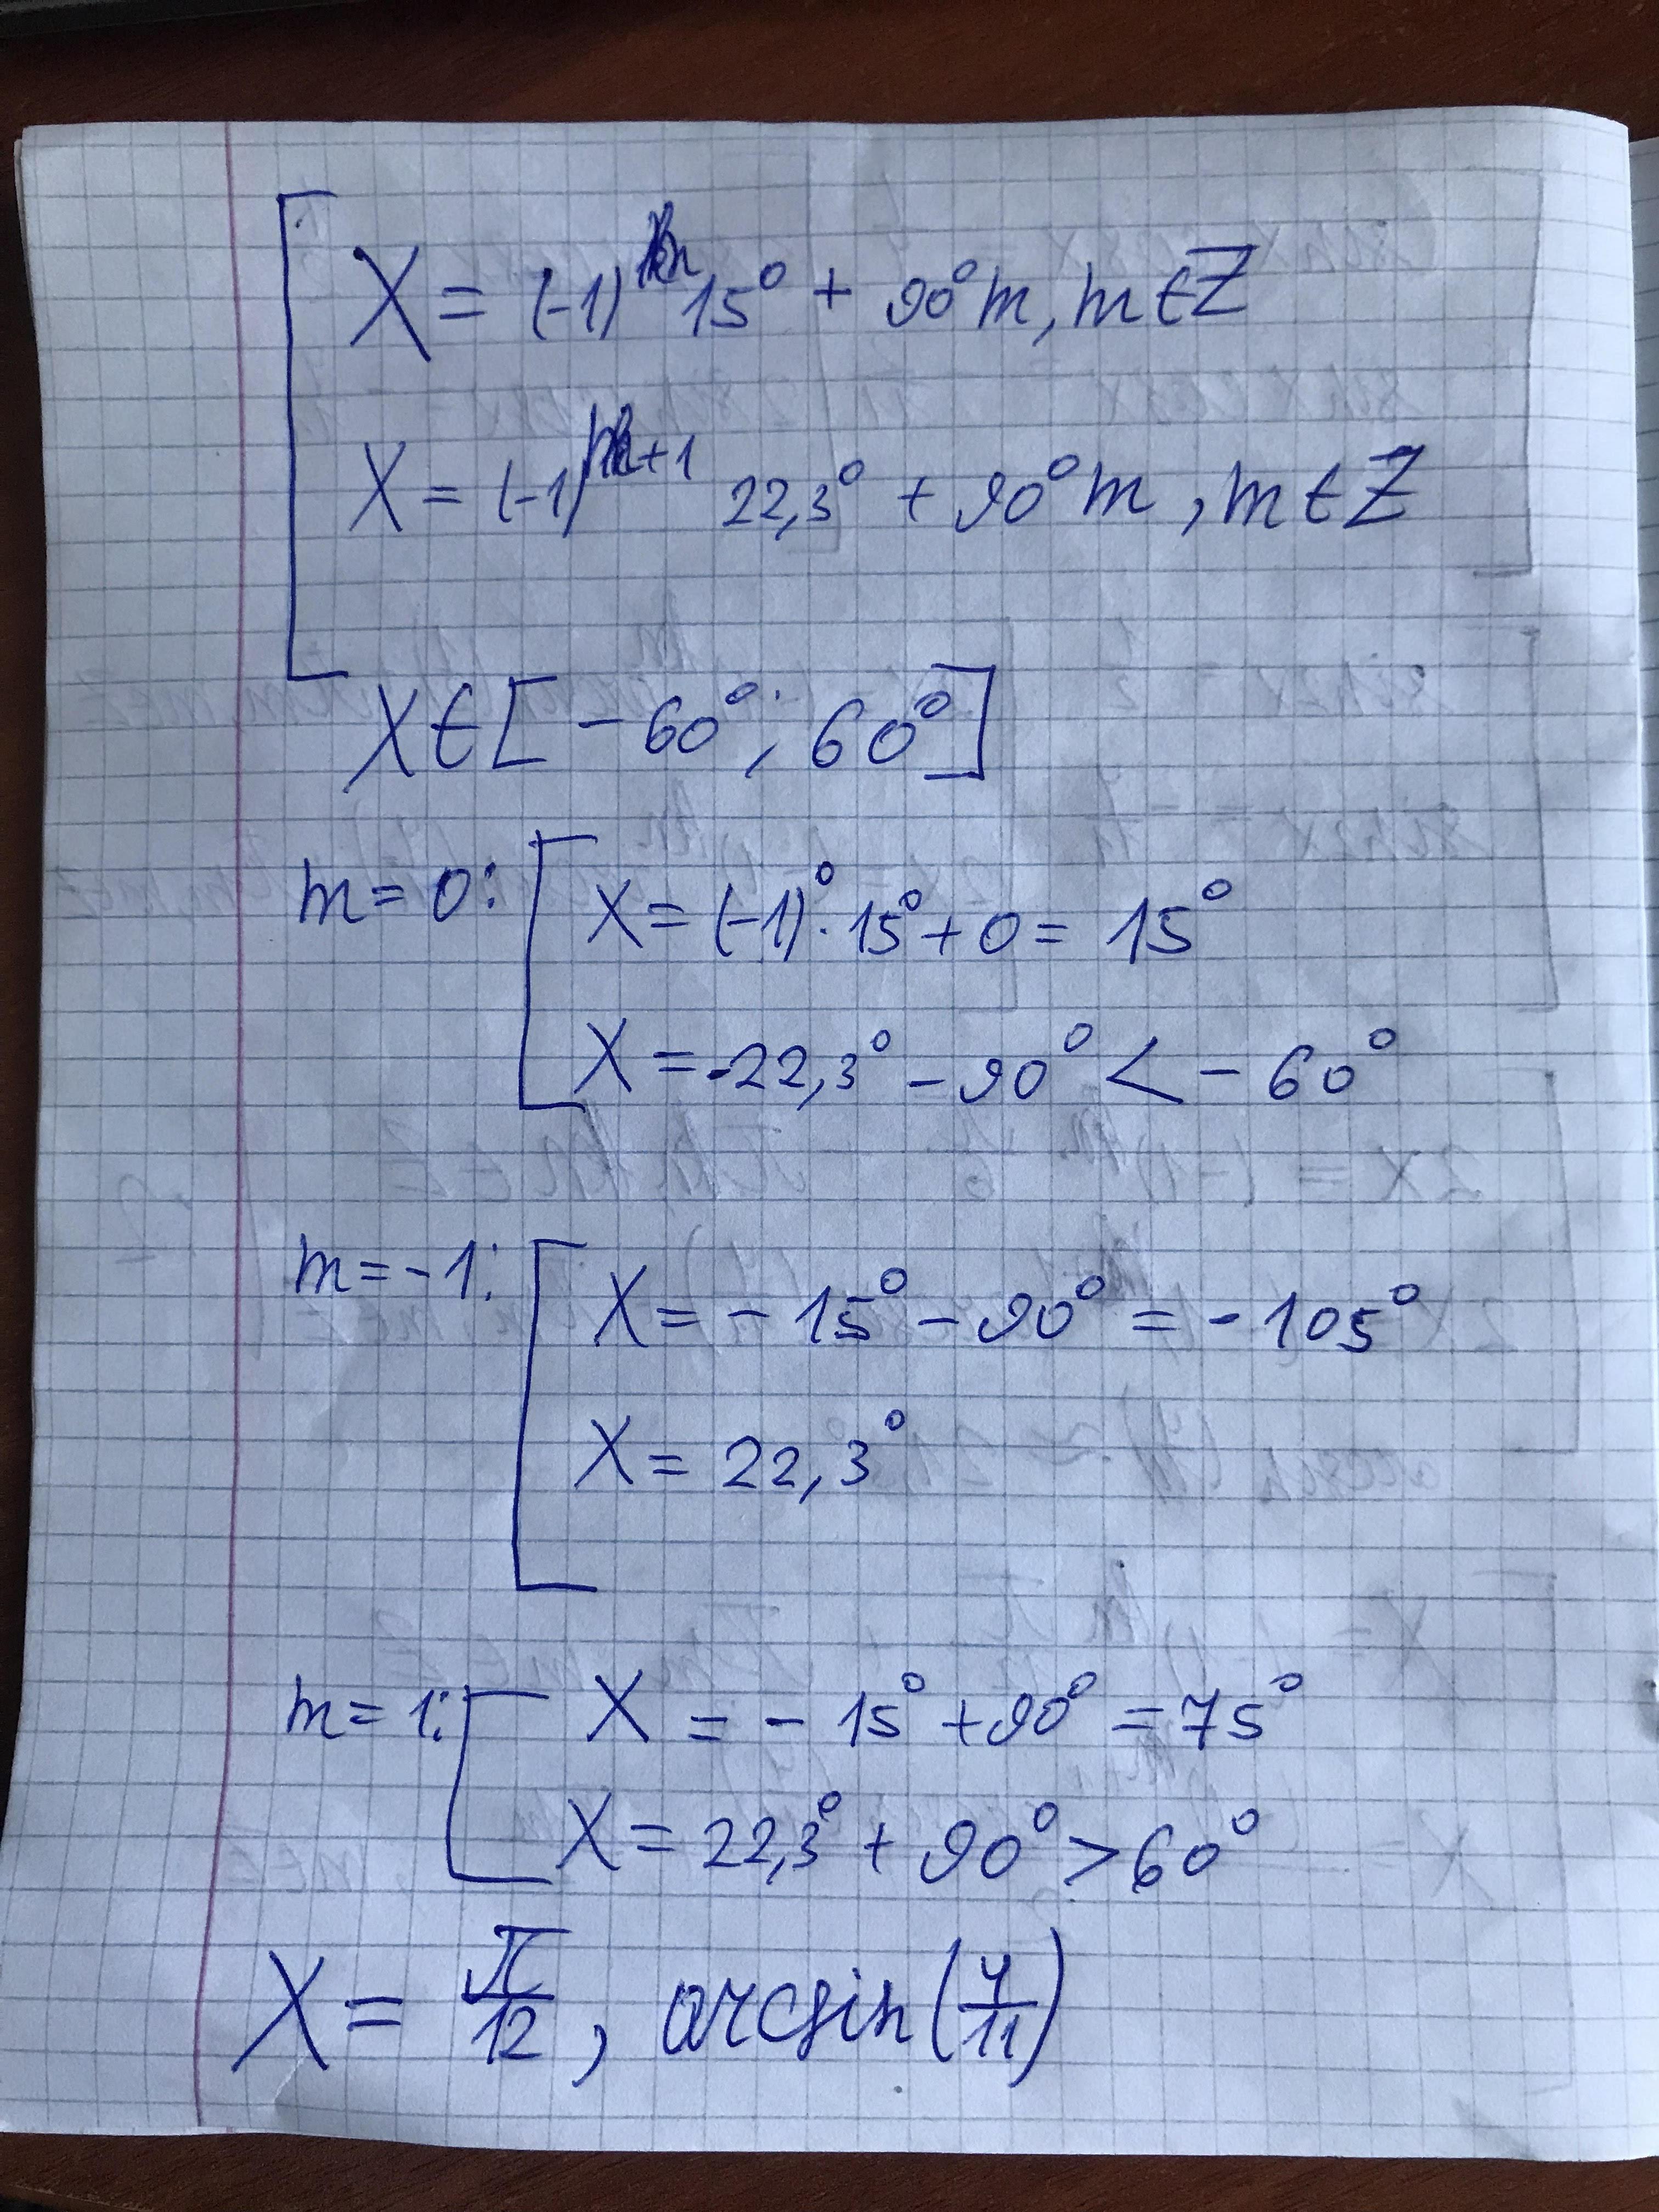 X = (-1)^m 15° + 90°m, m ∈ Z
X = (-1)^{m+1} 22,3° + 90°m, m ∈ Z
X ∈ [-60°; 60°]
m = 0:
X = (-1)° · 15° + 0 = 15°
X = -22,3° - 90° < -60°
m = -1:
X = -15° - 90° = -105°
X = 22,3°
m = 1:
X = -15° + 90° = 75°
X = 22,3° + 90° > 60°
X = π/12, arcsin(4/11)